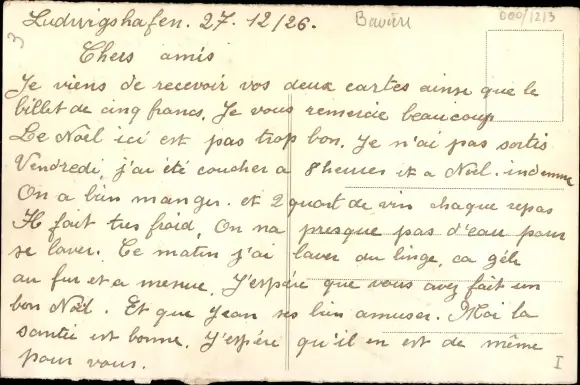 Ludwigshafen. 27. 12/26.
Bavière
000/1213
3
Chers amis
Je viens de recevoir vos deux cartes ainsi que le
billet de cinq francs. Je vous remercie beaucoup
Le Noël ici est pas trop bon. Je n'ai pas sortis
Vendredi, j'ai été coucher a 8 heures et a Noël. indemme
On a bien manger. et 2 quart de vin chaque repas
Il fait tres froid, On na presque pas d'eau pour
se laver. Ce matin j'ai laver du linge, ca gèle
au fur et a mesure. J'espére que vous avez fait un
bon Noël. Et que Jean ses bien amuser. Moi la
santée est bonne. J'espére qu'il en est de même
pour vous.
I